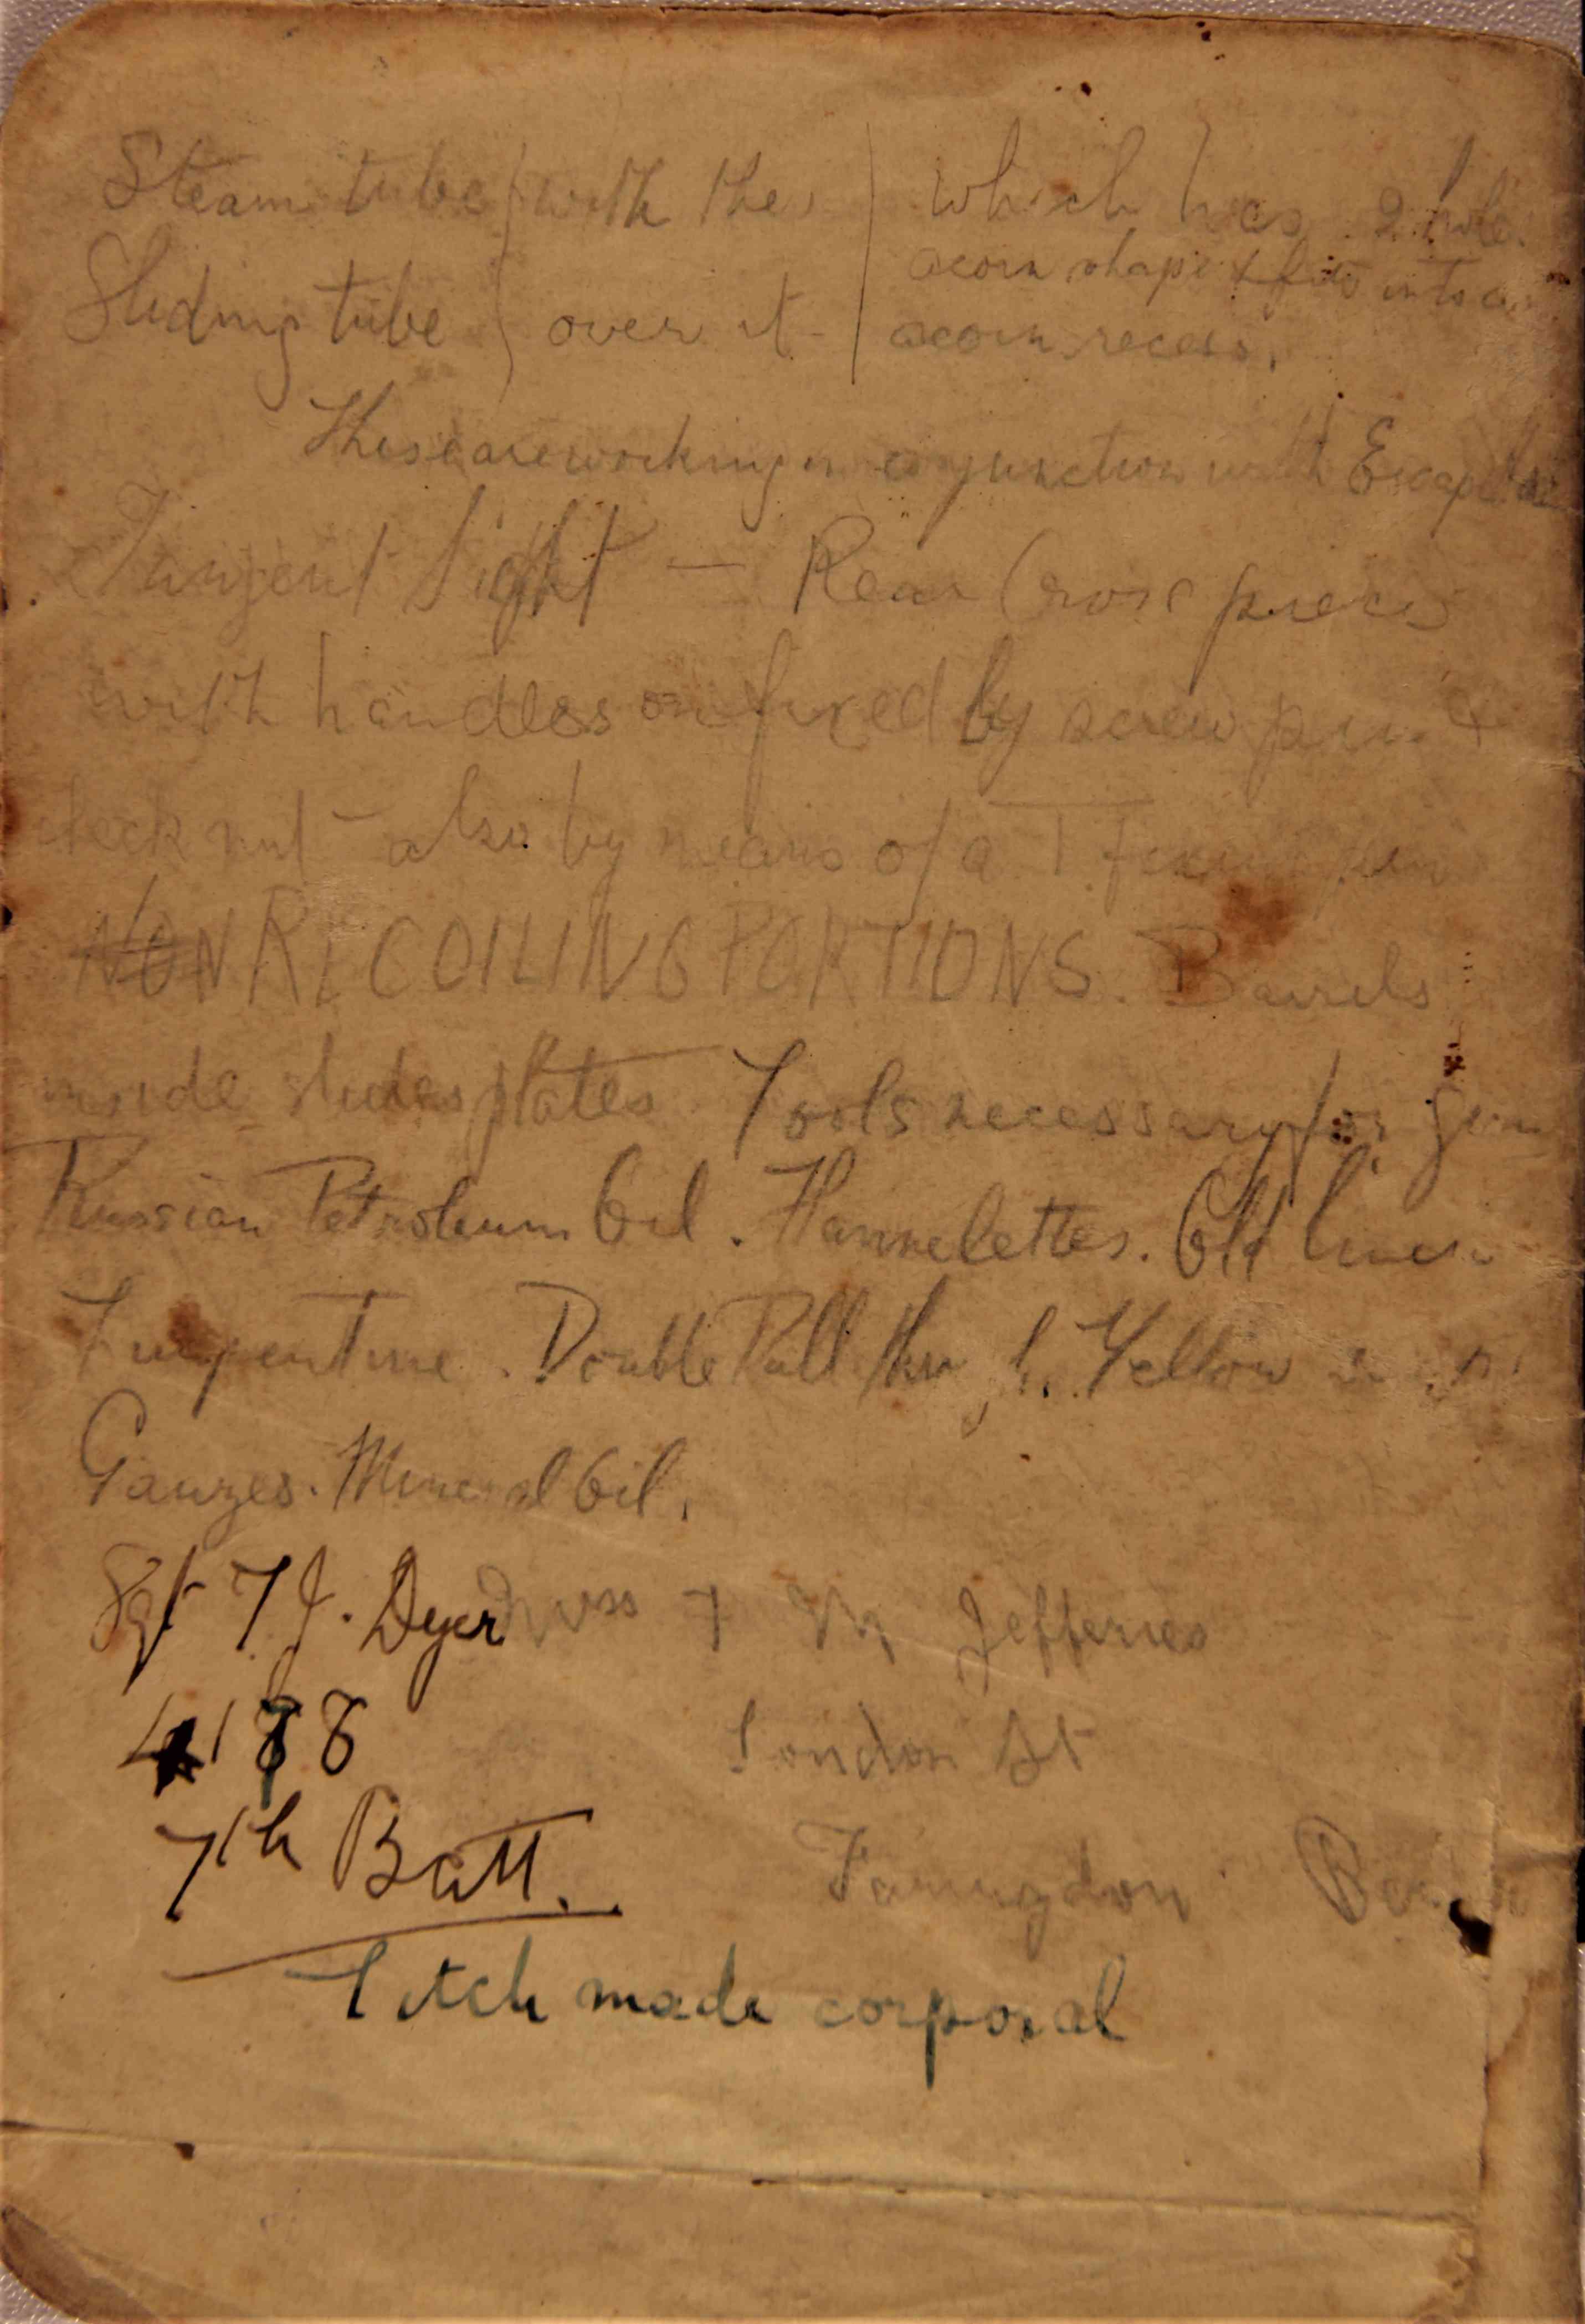 Steam tube with the which has 2 hole
acorn shape & fits into a
Sliding tube over it acorn recess.
These are working in conjunction with Escape
Tangent Sight — Rear Cross piece
with handles on fixed by screw pin &
check nut – also by means of a T fixing pin
NON RECOILING PORTIONS. Barrels
inside slides plates Tools necessary for gun
Russian Petroleum Oil. Flannelettes. Old linen
Turpentine. Double Pull through. Yellow
Gauzes. Mineral Oil.
Sgt T J. Dyer Jefferies
London St
7th Batt. Farringdon
made corporal